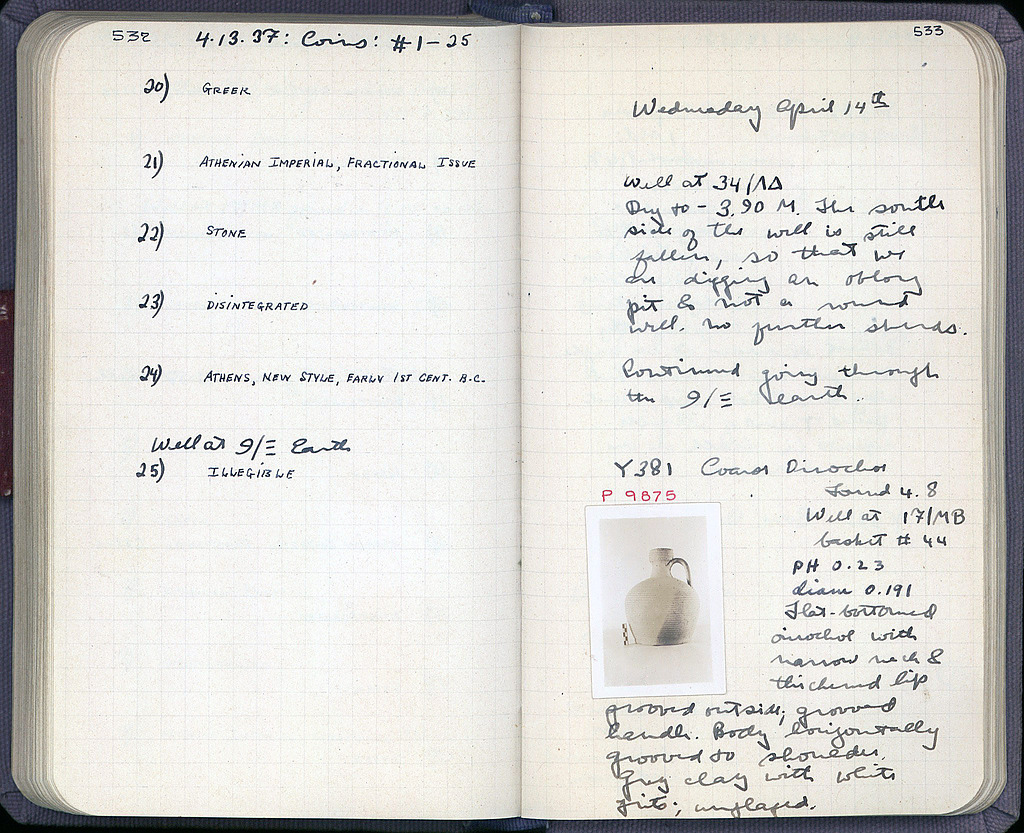 532 4.13.37: Coins: #1-25
20) GREEK
21) ATHENIAN IMPERIAL, FRACTIONAL ISSUE
22) STONE
23) DISINTEGRATED
24) ATHENS, NEW STYLE, EARLY 1ST CENT. B.C.
Well at 9/Ξ Earth
25) ILLEGIBLE
533
Wednesday April 14th
Well at 34/ΛΔ
Dry to -3.90 M. The south
side of the well is still
fallen, so that we
are digging an oblong
pit & not a round
well. No further sherds.
Continued going through
the 9/Ξ earth.
Y381 Coarse Oinochoe
P 9875
Found 4.8
Well at 17/MB
basket # 44
PH 0.23
diam 0.191
Flat-bottomed
oinochoe with
narrow neck &
thickened lip
grooved outside; grooved
handle. Body horizontally
grooved to shoulder.
Grey clay with white
grits; unglazed.